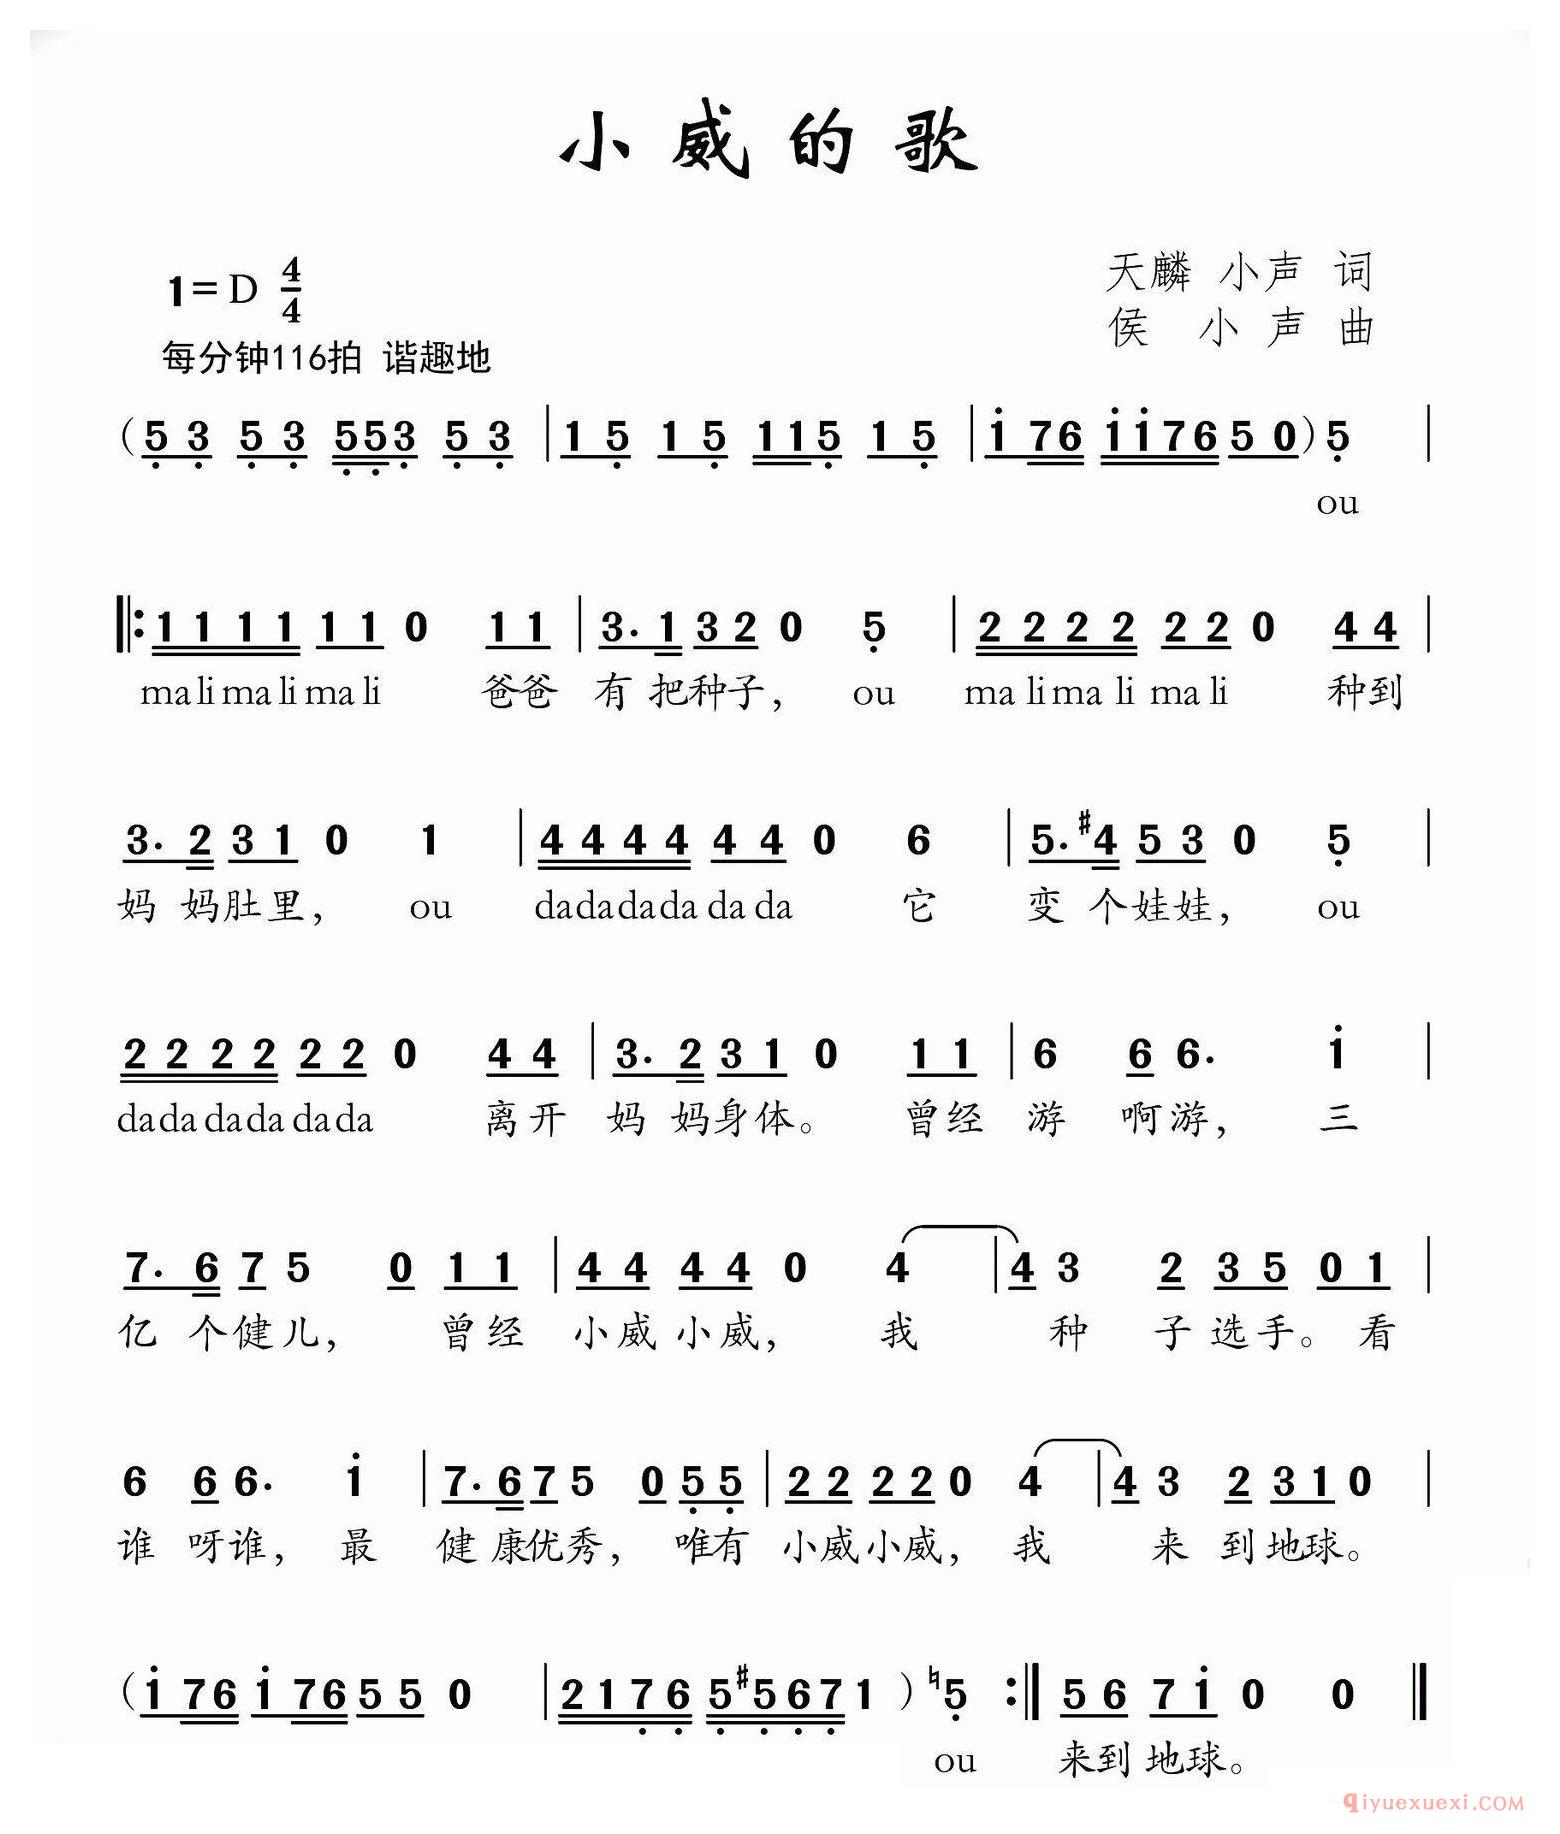 小威的歌
1=D 4/4
天麟 小声 词
每分钟116拍 谐趣地
侯 小声 曲
(5 3 5 3 553 5 3 | 1 5 1 5 115 1 5 | i 76 ii76 5 0) 5 |
ou
‖: 1 1 1 1 1 1 0 1 1 | 3. 1 3 2 0 5 | 2 2 2 2 2 2 0 4 4 |
ma li ma li ma li 爸爸 有 把种子， ou ma li ma li ma li 种到
3. 2 3 1 0 1 | 4 4 4 4 4 4 0 6 | 5. #4 5 3 0 5 |
妈 妈肚里， ou dadadada da da 它 变 个娃娃， ou
2 2 2 2 2 2 0 4 4 | 3. 2 3 1 0 1 1 | 6 6 6. i |
dada dada dada 离开 妈 妈身体。 曾经 游 啊游， 三
7. 6 7 5 0 1 1 | 4 4 4 4 0 4 | 4 3 2 3 5 0 1 |
亿 个健儿， 曾经 小威小威， 我 种 子选手。 看
6 6 6. i | 7. 6 7 5 0 5 5 | 2 2 2 2 0 4 | 4 3 2 3 1 0 |
谁 呀谁， 最 健 康优秀， 唯有 小威小威， 我 来 到地球。
(i 76 i 76 5 5 0 | 2 1 7 6 5 #5 6 7 1 ) ♮5 :‖ 5 6 7 i 0 0 ‖
ou 来到 地球。
qiyuexuexi.COM